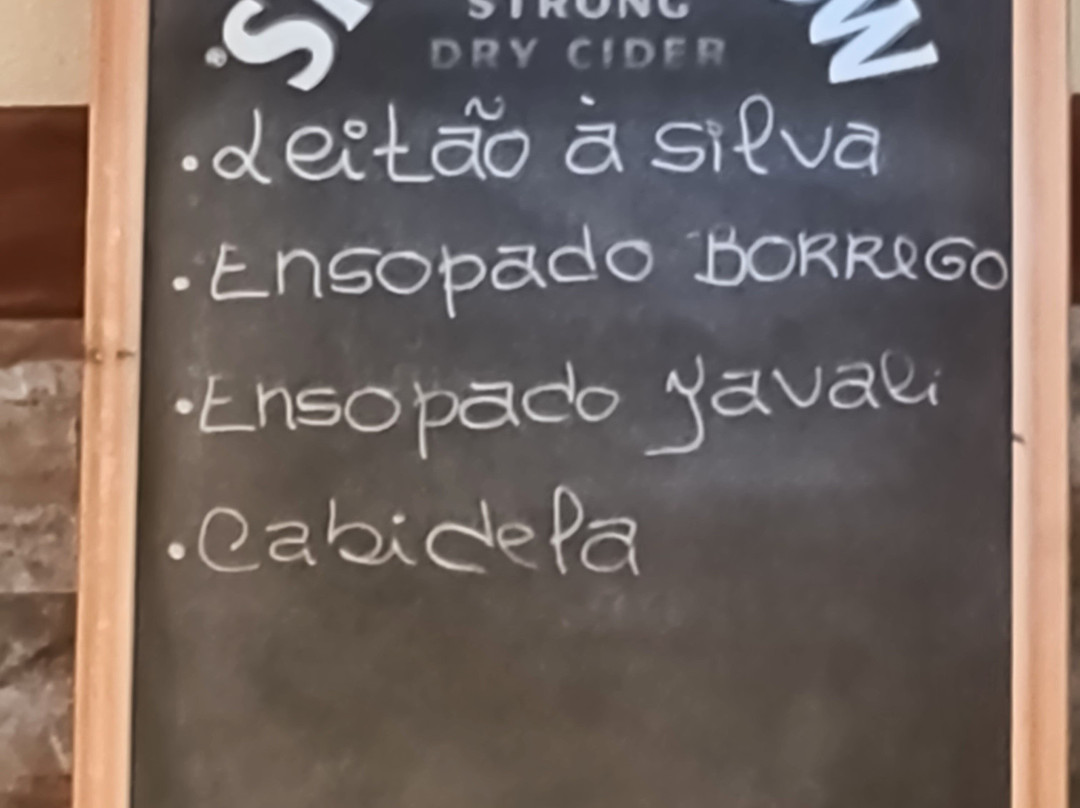 STRONG
DRY CIDER
®
• Leitão à Silva
• Ensopado BORREGO
• Ensopado Javali
• Cabidela